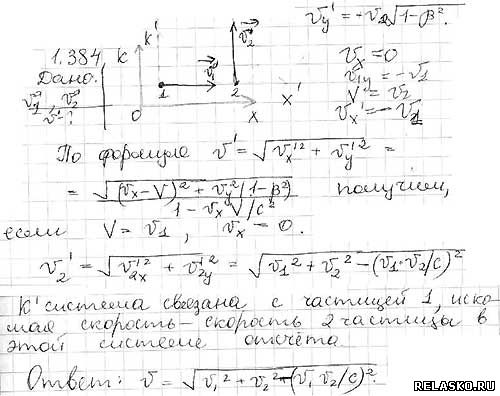 1.384
Дано:
v⃗₁, v⃗₂
v' - ?
K K'
v⃗₁ v⃗₂
1 2
0 x x'
vy' = -v₂√(1-β²).
vx = 0
v₁y = -v₁
V = v₂
vx' = -v₁
По формуле v' = √(vx'² + vy'²) =
= √((vx - V)² + vy²(1-β²)) / (1 - vxV/c²) получим,
если V = v₁, vx = 0.
v₂' = √(v₂x'² + v₂y'²) = √(v₁² + v₂² - (v₁·v₂/c)²
K' система связана с частицей 1, иско-
мая скорость - скорость 2 частицы в
этой системе отсчёта
Ответ: v = √(v₁² + v₂² - (v₁ v₂/c)².
RELASKO.RU